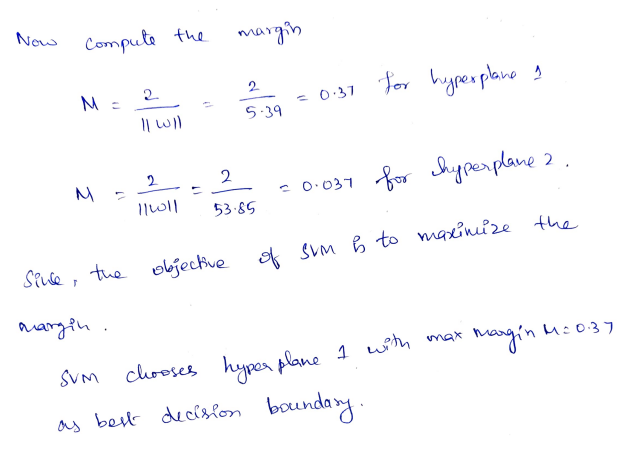 Now compute the margin
M = 2 / ||w|| = 2 / 5.39 = 0.37 for hyperplane 1
M = 2 / ||w|| = 2 / 53.85 = 0.037 for hyperplane 2.
Since, the objective of SVM is to maximize the
margin.
SVM chooses hyperplane 1 with max margin M = 0.37
as best decision boundary.